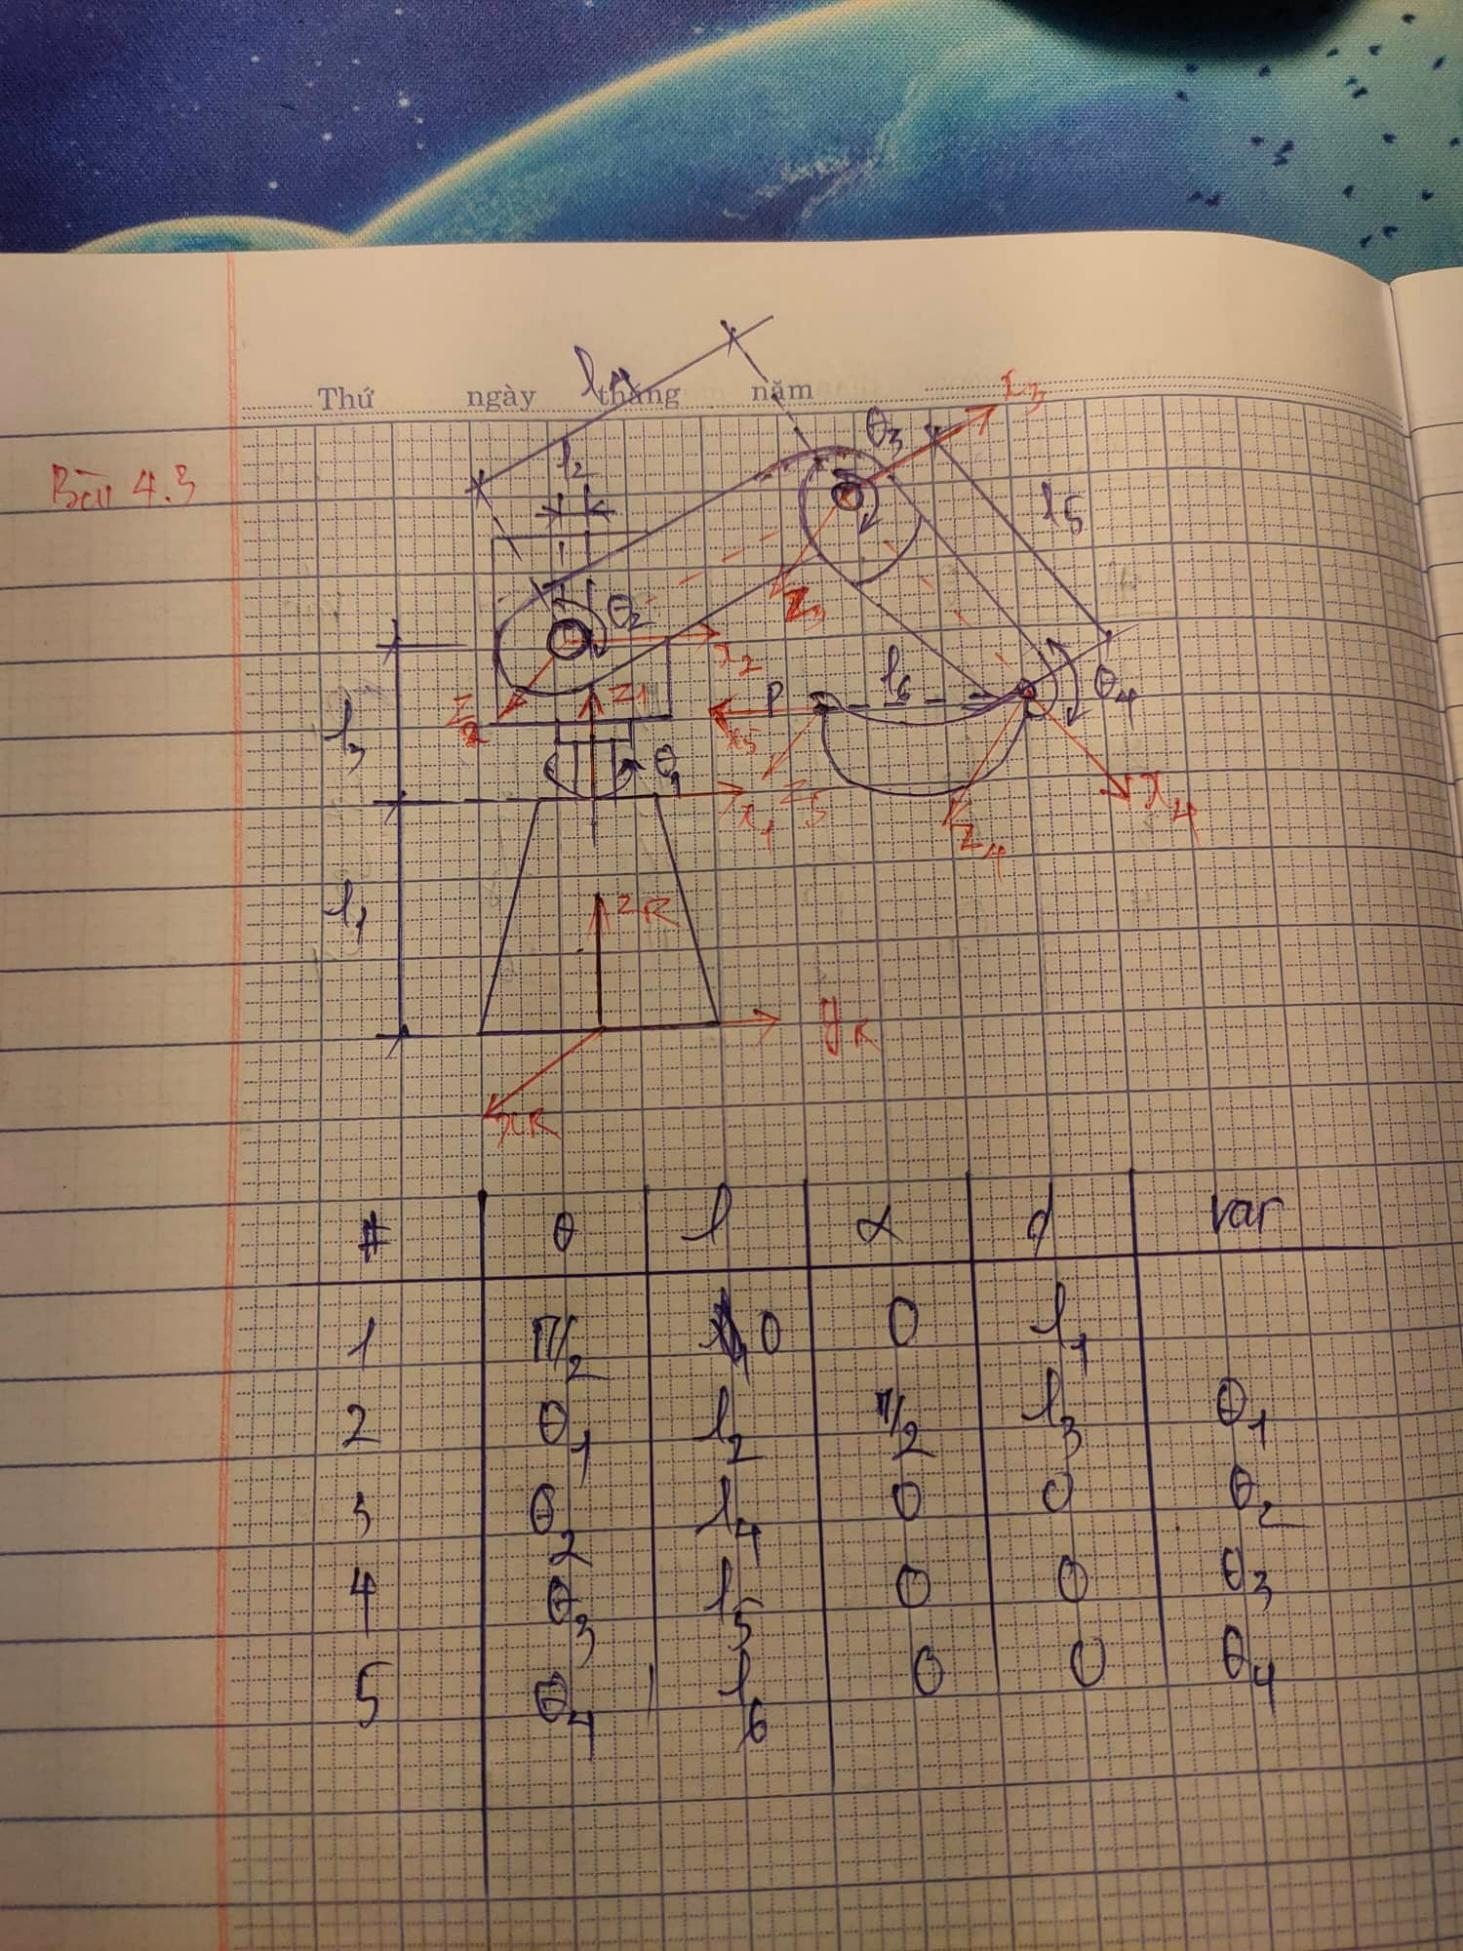 Thứ ngày tháng năm
Bài 4.3
l4
l2
θ3
x3
l5
z3
θ2
x2
z2
z1
l3
θ1
x1
P
l6
θ4
x5
z5
x4
z4
l1
zR
yR
xR
# θ l α d var
1 π/2 0 0 l1
2 θ1 l2 π/2 l3 θ1
3 θ2 l4 0 0 θ2
4 θ3 l5 0 0 θ3
5 θ4 l6 0 0 θ4